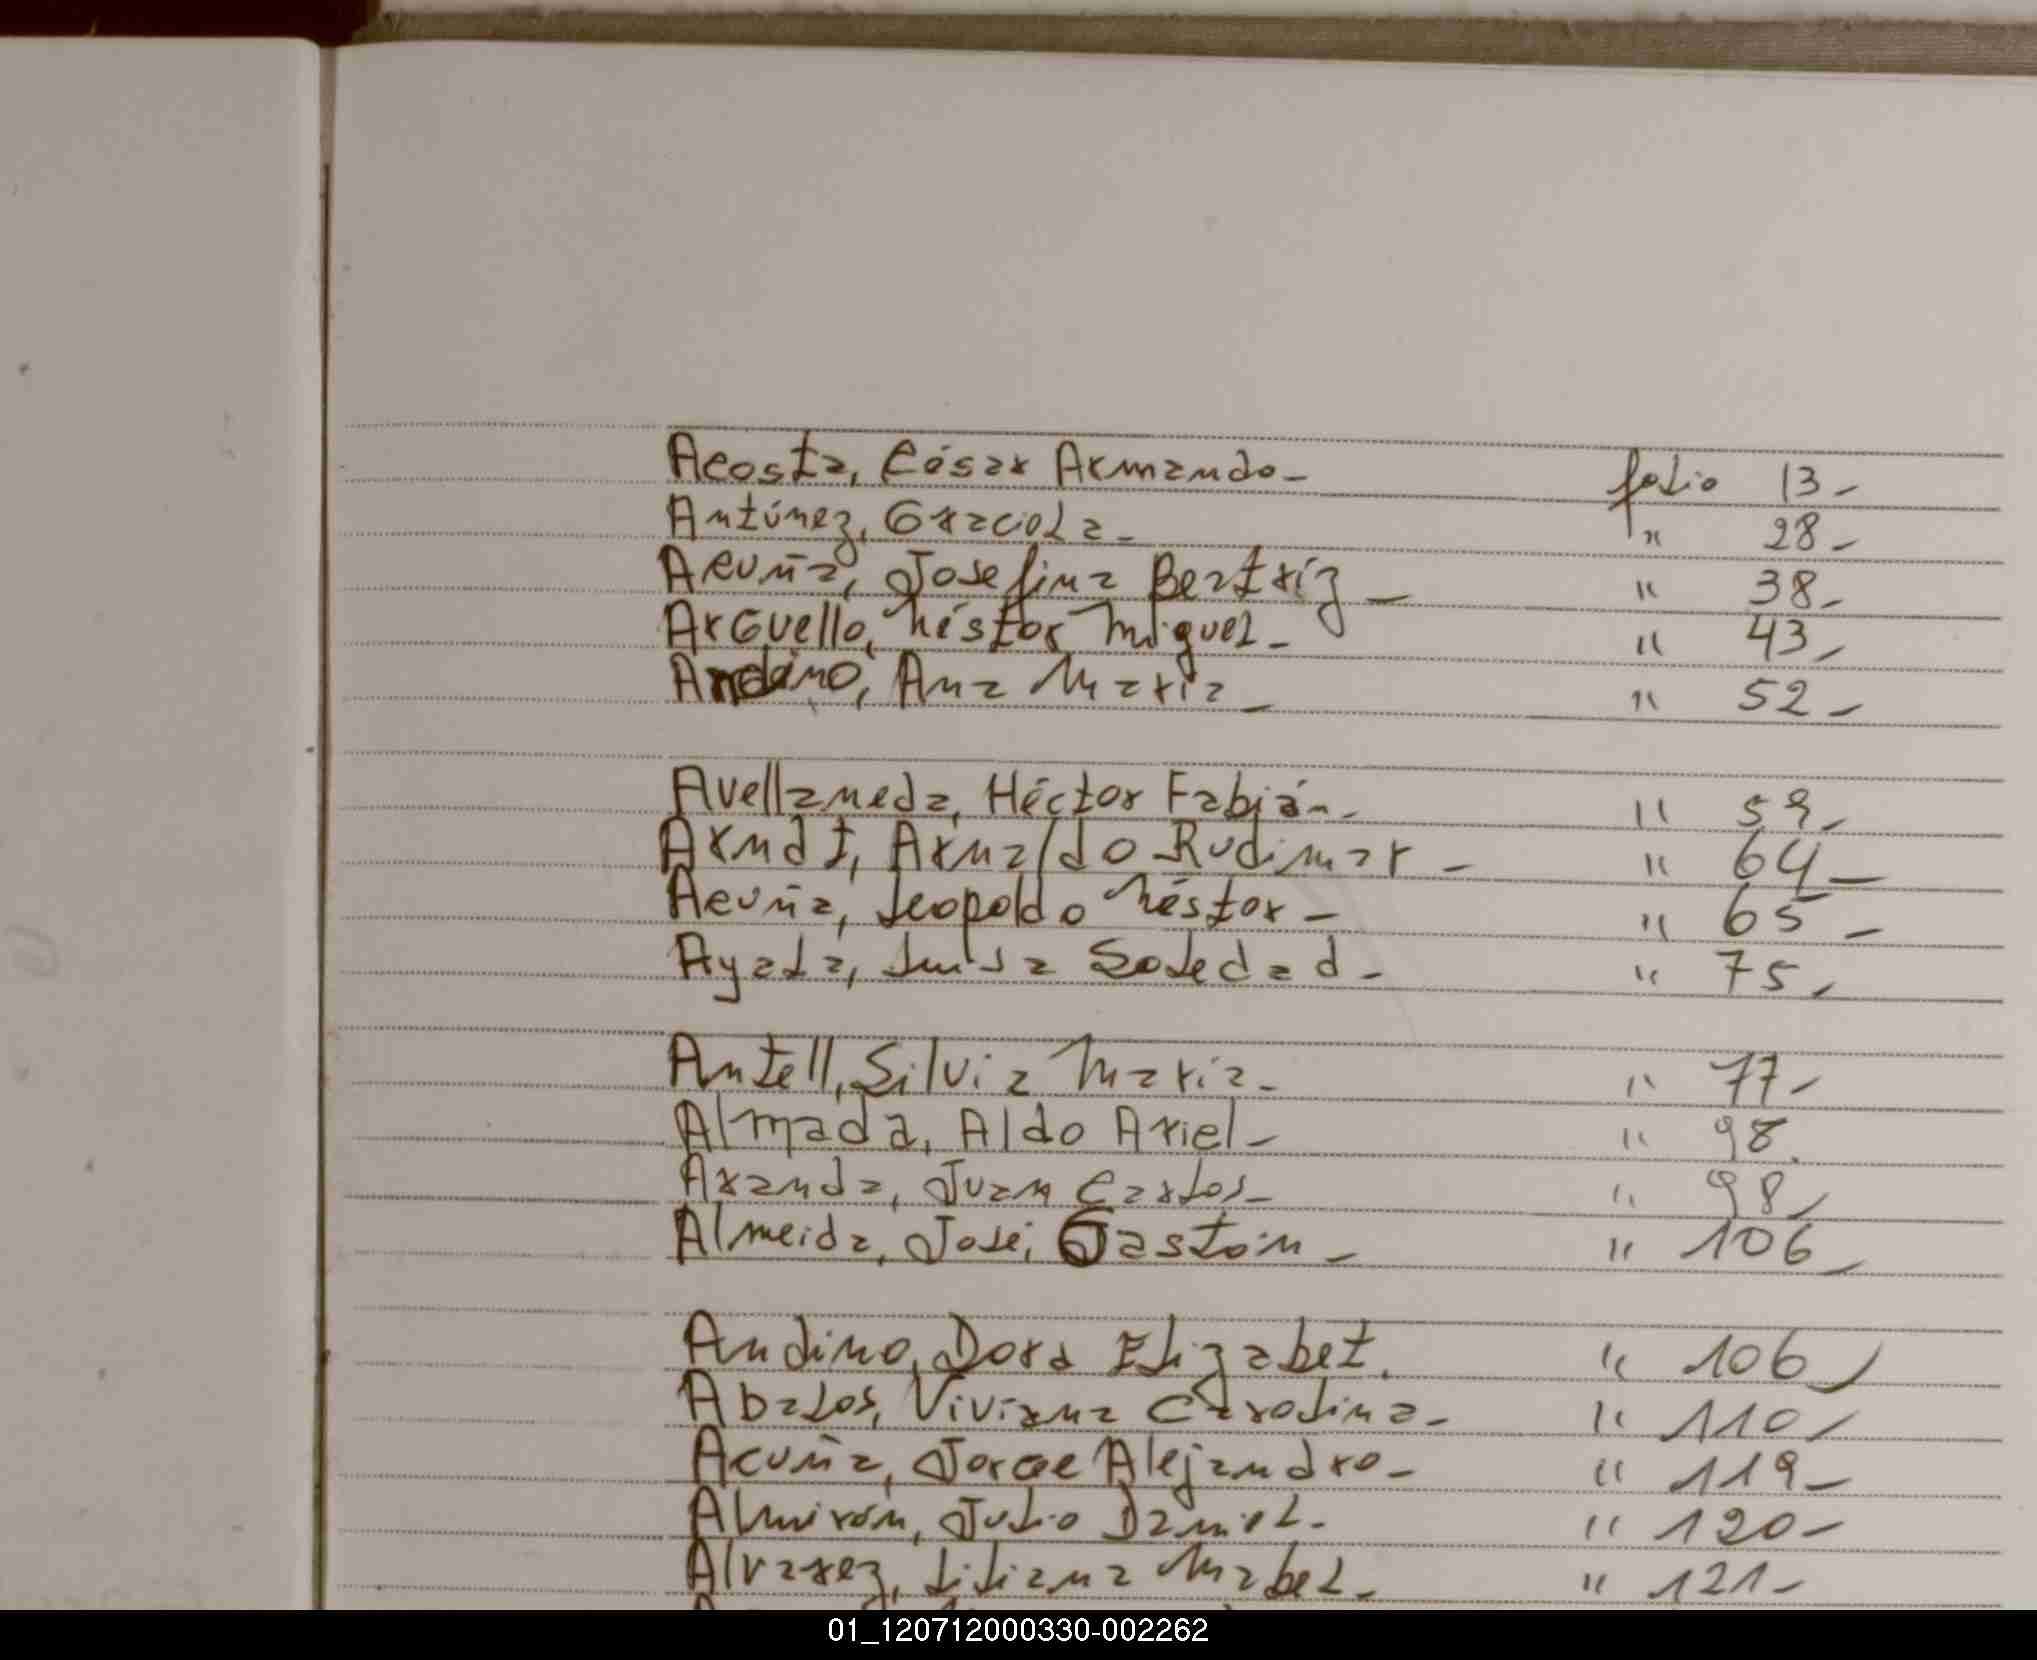 Acosta, César Armando- folio 13-
Antúnez, Graciela- " 28-
Acuña, Josefina Beatríz- " 38-
Arguello, Néstor Miguel- " 43-
Andino, Ana María- " 52-
Avellaneda, Héctor Fabián- " 59-
Arndt, Arnaldo Rudimar- " 64-
Acuña, Leopoldo Néstor- " 65-
Ayala, Luisa Soledad- " 75-
Antell, Silvia María- " 77-
Almada, Aldo Ariel- " 98.
Aranda, Juan Carlos- " 98-
Almeida, José, Gastón- " 106-
Andino, Dora Elizabet. " 106-
Abalos, Viviana Carolina- " 110-
Acuña, Jorge Alejandro- " 119-
Almirón, Julio Daniel- " 120-
Alvarez, Liliana Mabel- " 121-
01_120712000330-002262